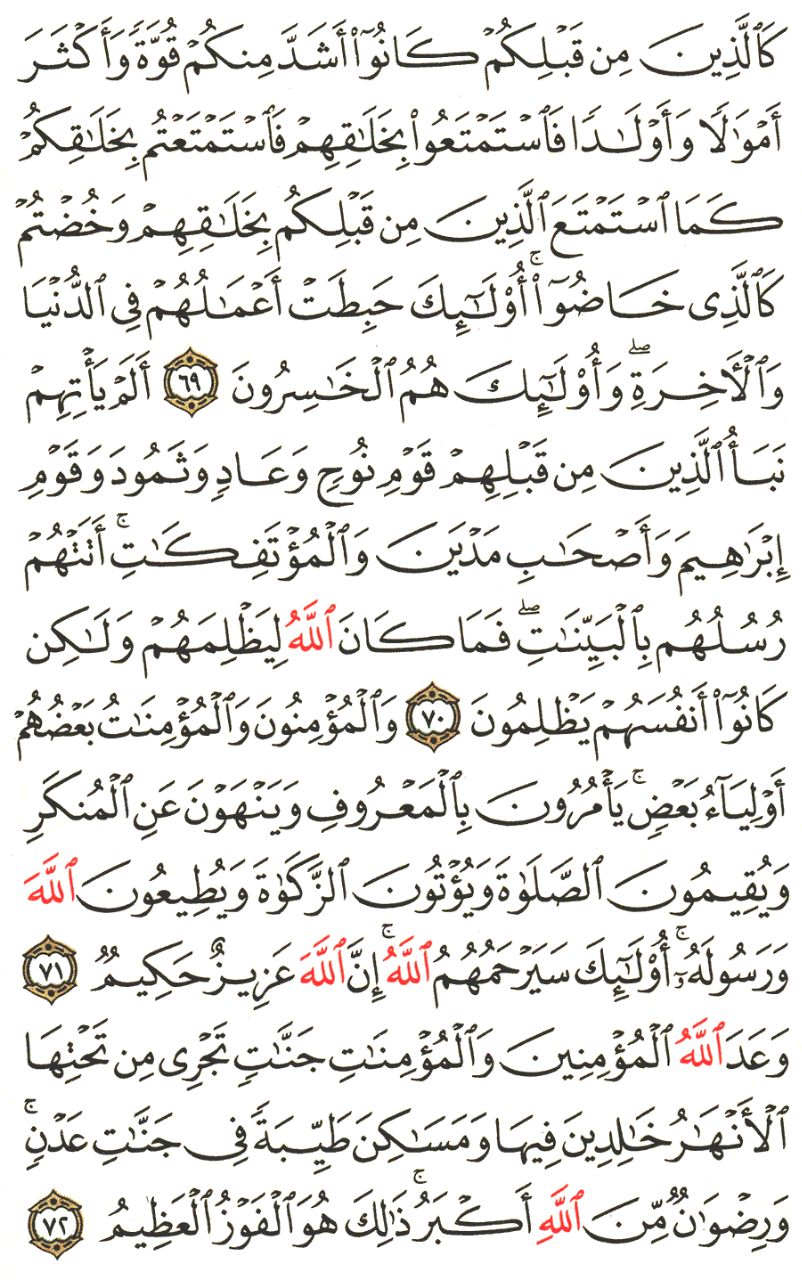 كَٱلَّذِينَ مِن قَبۡلِكُمۡ كَانُوٓاْ أَشَدَّ مِنكُمۡ قُوَّةٗ وَأَكۡثَرَ
أَمۡوَٰلٗا وَأَوۡلَٰدٗا فَٱسۡتَمۡتَعُواْ بِخَلَٰقِهِمۡ فَٱسۡتَمۡتَعۡتُم بِخَلَٰقِكُمۡ
كَمَا ٱسۡتَمۡتَعَ ٱلَّذِينَ مِن قَبۡلِكُم بِخَلَٰقِهِمۡ وَخُضۡتُمۡ
كَٱلَّذِي خَاضُوٓاْۚ أُوْلَٰٓئِكَ حَبِطَتۡ أَعۡمَٰلُهُمۡ فِي ٱلدُّنۡيَا
وَٱلۡأٓخِرَةِۖ وَأُوْلَٰٓئِكَ هُمُ ٱلۡخَٰسِرُونَ ٦٩ أَلَمۡ يَأۡتِهِمۡ
نَبَأُ ٱلَّذِينَ مِن قَبۡلِهِمۡ قَوۡمِ نُوحٖ وَعَادٖ وَثَمُودَ وَقَوۡمِ
إِبۡرَٰهِيمَ وَأَصۡحَٰبِ مَدۡيَنَ وَٱلۡمُؤۡتَفِكَٰتِۚ أَتَتۡهُمۡ
رُسُلُهُم بِٱلۡبَيِّنَٰتِۖ فَمَا كَانَ ٱللَّهُ لِيَظۡلِمَهُمۡ وَلَٰكِن
كَانُوٓاْ أَنفُسَهُمۡ يَظۡلِمُونَ ٧٠ وَٱلۡمُؤۡمِنُونَ وَٱلۡمُؤۡمِنَٰتُ بَعۡضُهُمۡ
أَوۡلِيَآءُ بَعۡضٖۚ يَأۡمُرُونَ بِٱلۡمَعۡرُوفِ وَيَنۡهَوۡنَ عَنِ ٱلۡمُنكَرِ
وَيُقِيمُونَ ٱلصَّلَوٰةَ وَيُؤۡتُونَ ٱلزَّكَوٰةَ وَيُطِيعُونَ ٱللَّهَ
وَرَسُولَهُۥٓۚ أُوْلَٰٓئِكَ سَيَرۡحَمُهُمُ ٱللَّهُۗ إِنَّ ٱللَّهَ عَزِيزٌ حَكِيمٞ ٧١
وَعَدَ ٱللَّهُ ٱلۡمُؤۡمِنِينَ وَٱلۡمُؤۡمِنَٰتِ جَنَّٰتٖ تَجۡرِي مِن تَحۡتِهَا
ٱلۡأَنۡهَٰرُ خَٰلِدِينَ فِيهَا وَمَسَٰكِنَ طَيِّبَةٗ فِي جَنَّٰتِ عَدۡنٖۚ
وَرِضۡوَٰنٞ مِّنَ ٱللَّهِ أَكۡبَرُۚ ذَٰلِكَ هُوَ ٱلۡفَوۡزُ ٱلۡعَظِيمُ ٧٢